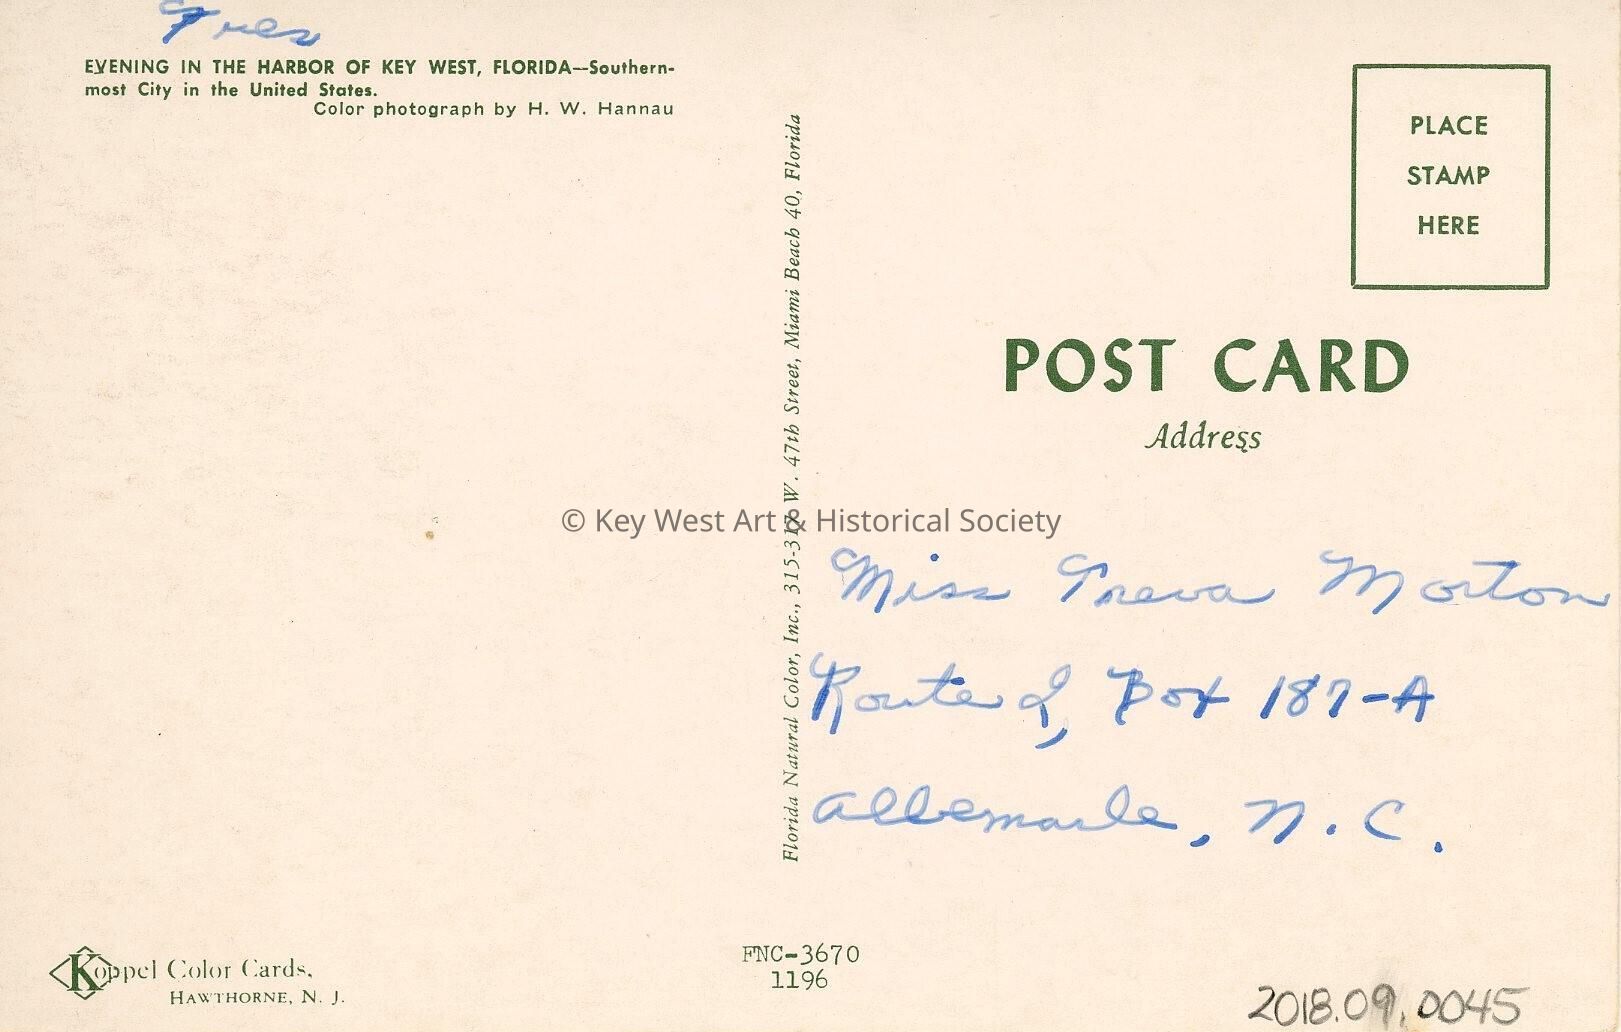 Tres
EVENING IN THE HARBOR OF KEY WEST, FLORIDA—Southern-
most City in the United States.
Color photograph by H. W. Hannau
Florida Natural Color, Inc., 315-317 W. 47th Street, Miami Beach 40, Florida
PLACE
STAMP
HERE
POST CARD
Address
© Key West Art & Historical Society
Miss Treva Morton
Route 2, Box 187-A
Albemarle, N. C.
Koppel Color Cards,
HAWTHORNE, N. J.
FNC-3670
1196
2018.09.0045